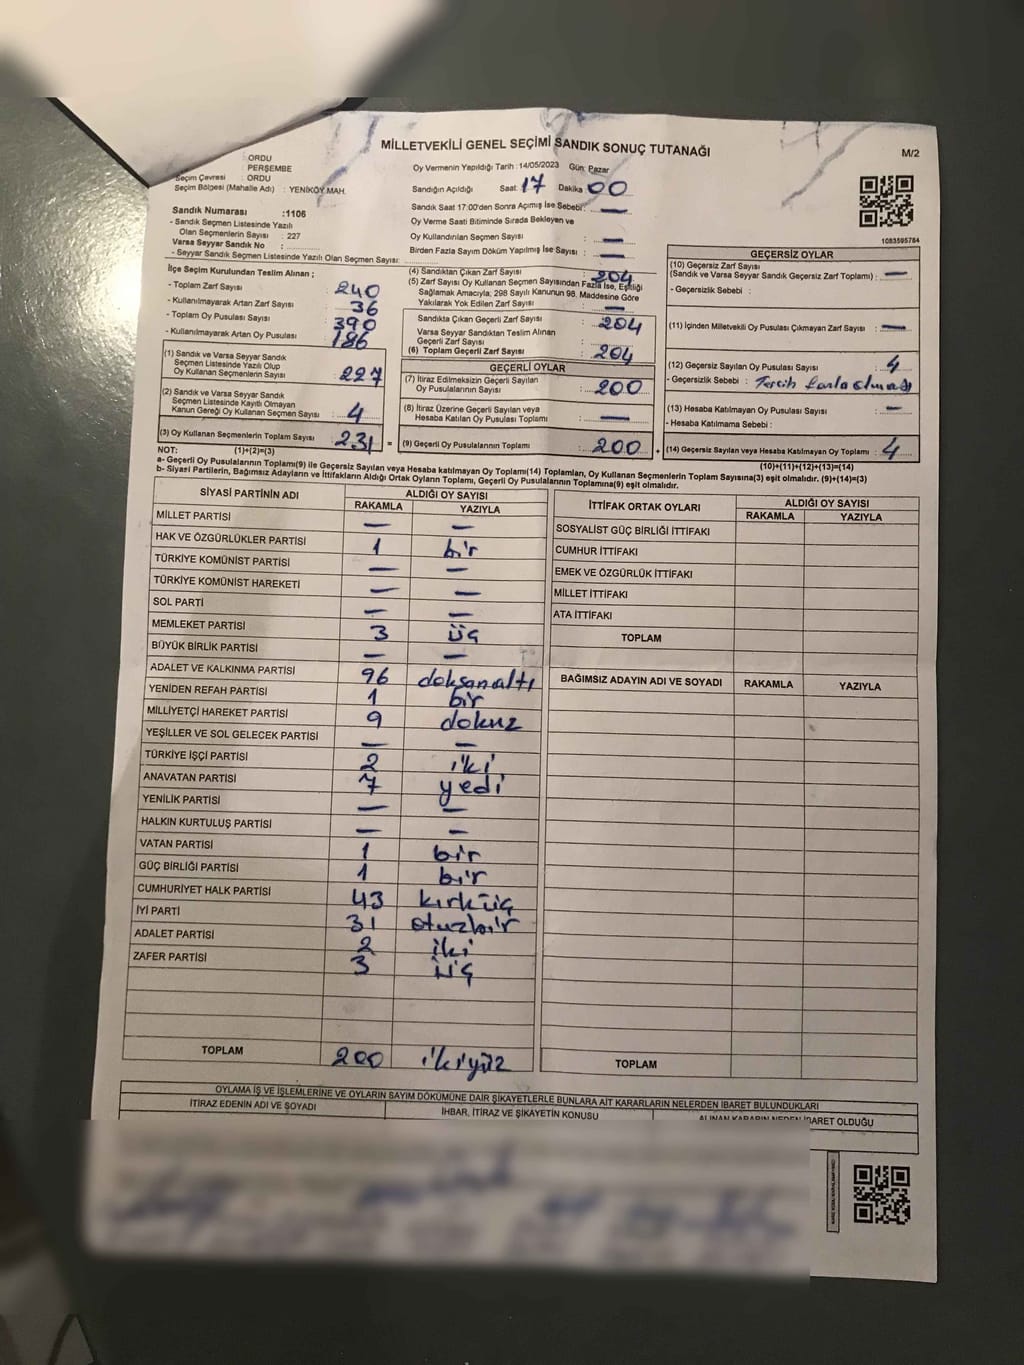 MİLLETVEKİLİ GENEL SEÇİMİ SANDIK SONUÇ TUTANAĞI
M/2
ORDU
PERŞEMBE
Seçim Çevresi : ORDU
Seçim Bölgesi (Mahalle Adı) : YENİKÖY MAH.
Oy Vermenin Yapıldığı Tarih : 14/05/2023 Gün: Pazar
Sandığın Açıldığı Saat: 17 Dakika 00
Sandık Saat 17:00'den Sonra Açımış İse Sebebi : —
Oy Verme Saati Bitiminde Sırada Bekleyen ve
Oy Kullandırılan Seçmen Sayısı : —
Birden Fazla Sayım Döküm Yapılmış İse Sayısı : —
Sandık Numarası :1106
- Sandık Seçmen Listesinde Yazılı
Olan Seçmenlerin Sayısı : 227
Varsa Seyyar Sandık No :
- Seyyar Sandık Seçmen Listesinde Yazılı Olan Seçmen Sayısı:
1083595784
İlçe Seçim Kurulundan Teslim Alınan ;
- Toplam Zarf Sayısı : 240
- Kullanılmayarak Artan Zarf Sayısı : 36
- Toplam Oy Pusulası Sayısı : 390
- Kullanılmayarak Artan Oy Pusulası : 186
(1) Sandık ve Varsa Seyyar Sandık
Seçmen Listesinde Yazılı Olup
Oy Kullanan Seçmenlerin Sayısı : 227
(2) Sandık ve Varsa Seyyar Sandık
Seçmen Listesinde Kayıtlı Olmayan
Kanun Gereği Oy Kullanan Seçmen Sayısı : 4
(3) Oy Kullanan Seçmenlerin Toplam Sayısı : 231 =
(4) Sandıktan Çıkan Zarf Sayısı : 204
(5) Zarf Sayısı Oy Kullanan Seçmen Sayısından Fazla İse, Eşitliği
Sağlamak Amacıyla, 298 Sayılı Kanunun 98. Maddesine Göre
Yakılarak Yok Edilen Zarf Sayısı : —
Sandıkta Çıkan Geçerli Zarf Sayısı : 204
Varsa Seyyar Sandıktan Teslim Alınan
Geçerli Zarf Sayısı :
(6) Toplam Geçerli Zarf Sayısı : 204
GEÇERLİ OYLAR
(7) İtiraz Edilmeksizin Geçerli Sayılan
Oy Pusulalarının Sayısı : 200
(8) İtiraz Üzerine Geçerli Sayılan veya
Hesaba Katılan Oy Pusulası Toplamı : —
(9) Geçerli Oy Pusulalarının Toplamı : 200 +
GEÇERSİZ OYLAR
(10) Geçersiz Zarf Sayısı
(Sandık ve Varsa Seyyar Sandık Geçersiz Zarf Toplamı) : —
- Geçersizlik Sebebi :
(11) İçinden Milletvekili Oy Pusulası Çıkmayan Zarf Sayısı : —
(12) Geçersiz Sayılan Oy Pusulası Sayısı : 4
- Geçersizlik Sebebi : Tercih fazla olması
(13) Hesaba Katılmayan Oy Pusulası Sayısı : —
- Hesaba Katılmama Sebebi :
(14) Geçersiz Sayılan veya Hesaba Katılmayan Oy Toplamı : 4
NOT: (1)+(2)=(3)
(10)+(11)+(12)+(13)=(14)
a- Geçerli Oy Pusulalarının Toplamı(9) ile Geçersiz Sayılan veya Hesaba katılmayan Oy Toplamı(14) Toplamları, Oy Kullanan Seçmenlerin Toplam Sayısına(3) eşit olmalıdır. (9)+(14)=(3)
b- Siyasi Partilerin, Bağımsız Adayların ve İttifakların Aldığı Ortak Oyların Toplamı, Geçerli Oy Pusulalarının Toplamına(9) eşit olmalıdır.
SİYASİ PARTİNİN ADI ALDIĞI OY SAYISI
RAKAMLA YAZIYLA
MİLLET PARTİSİ — —
HAK VE ÖZGÜRLÜKLER PARTİSİ 1 bir
TÜRKİYE KOMÜNİST PARTİSİ — —
TÜRKİYE KOMÜNİST HAREKETİ — —
SOL PARTİ — —
MEMLEKET PARTİSİ 3 üç
BÜYÜK BİRLİK PARTİSİ — —
ADALET VE KALKINMA PARTİSİ 96 doksanaltı
YENİDEN REFAH PARTİSİ 1 bir
MİLLİYETÇİ HAREKET PARTİSİ 9 dokuz
YEŞİLLER VE SOL GELECEK PARTİSİ — —
TÜRKİYE İŞÇİ PARTİSİ 2 iki
ANAVATAN PARTİSİ 7 yedi
YENİLİK PARTİSİ — —
HALKIN KURTULUŞ PARTİSİ — —
VATAN PARTİSİ 1 bir
GÜÇ BİRLİĞİ PARTİSİ 1 bir
CUMHURİYET HALK PARTİSİ 43 kırküç
İYİ PARTİ 31 otuzbir
ADALET PARTİSİ 2 iki
ZAFER PARTİSİ 3 üç
TOPLAM 200 ikiyüz
İTTİFAK ORTAK OYLARI ALDIĞI OY SAYISI
RAKAMLA YAZIYLA
SOSYALİST GÜÇ BİRLİĞİ İTTİFAKI
CUMHUR İTTİFAKI
EMEK VE ÖZGÜRLÜK İTTİFAKI
MİLLET İTTİFAKI
ATA İTTİFAKI
TOPLAM
BAĞIMSIZ ADAYIN ADI VE SOYADI RAKAMLA YAZIYLA
TOPLAM
OYLAMA İŞ VE İŞLEMLERİNE VE OYLARIN SAYIM DÖKÜMÜNE DAİR ŞİKAYETLERLE BUNLARA AİT KARARLARIN NELERDEN İBARET BULUNDUKLARI
İTİRAZ EDENİN ADI VE SOYADI İHBAR, İTİRAZ VE ŞİKAYETİN KONUSU ALINAN KARARIN NEDEN İBARET OLDUĞU